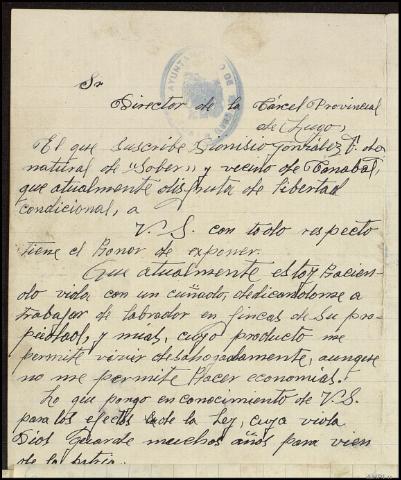 AYUNTA DE
Sr
Director de la Cárcel Provincial
de Lugo,
El que suscribe Dionisio González
natural de "Sober" y vecino de Canabal,
que atualmente disfruta de libertad
condicional, a
V. S. con todo respecto
tiene el honor de exponer.
Que atualmente estoy hacien-
do vida con un cuñado, dedicandome a
trabajar de labrador en fincas de su pro-
piedad, y mias, cuyo producto me
permite vivir desahogadamente, aunque
no me permite hacer economías.
Lo que pongo en conocimiento de V. S.
para los efectos de la ley, cuya vida
Dios Guarde muchos años para vien
de la patria.